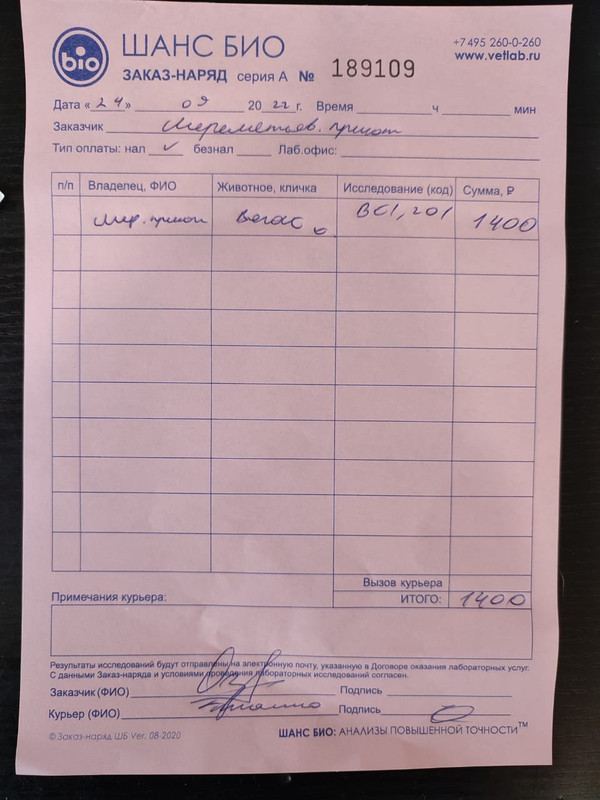 bio ШАНС БИО
+7 495 260-0-260
www.vetlab.ru
ЗАКАЗ-НАРЯД серия А № 189109
Дата «24» 09 2022 г. Время ч мин
Заказчик приют
Тип оплаты: нал ✓ безнал Лаб.офис:
п/п Владелец, ФИО Животное, кличка Исследование (код) Сумма, ₽
Шер. приют Вегас ВС1, 201 1400
Вызов курьера
Примечания курьера: ИТОГО: 1400
Результаты исследований будут отправлены на электронную почту, указанную в Договоре оказания лабораторных услуг.
С данными Заказ-наряда и условиями проведения лабораторных исследований согласен.
Заказчик (ФИО) Подпись
Курьер (ФИО) Подпись
© Заказ-наряд ШБ Ver. 08-2020 ШАНС БИО: АНАЛИЗЫ ПОВЫШЕННОЙ ТОЧНОСТИ™